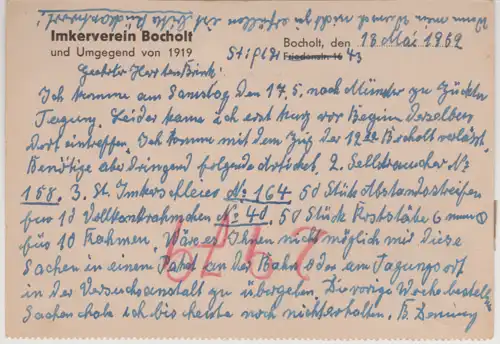 Wenn mein Wunsch nicht zu erfüllen ist, bitte Rückantwort!
Imkerverein Bocholt
und Umgegend von 1919
Bocholt, den 13 Mai 1952
Stifts Friedenstr. 16 43
Geehrter Herr ten Brink!
Ich komme am Samstag den 17.5. nach Münster zu Züchter
Tagung. Leider kann ich erst kurz vor Beginn derselben
dort eintreffen. Ich komme mit dem Zug der 12 Bocholt verlässt.
Benötige aber dringend folgende Artikel. 2. Selbstraucher No
158. 3. St. Imkerschleier No 164. 50 Stück Abstandsstreifen
für 10 Vollkorbrahmen No 4d. 50 Stück Roststäbe 6 mm
für 10 Rahmen. Wäre es Ihnen nicht möglich mir diese
Sachen in einem Paket an der Bahn oder am Tagungsort
in der Versuchsanstalt zu übergeben. Die vorige Woche bestellten
Sachen habe ich bis heute noch nicht erhalten. B.